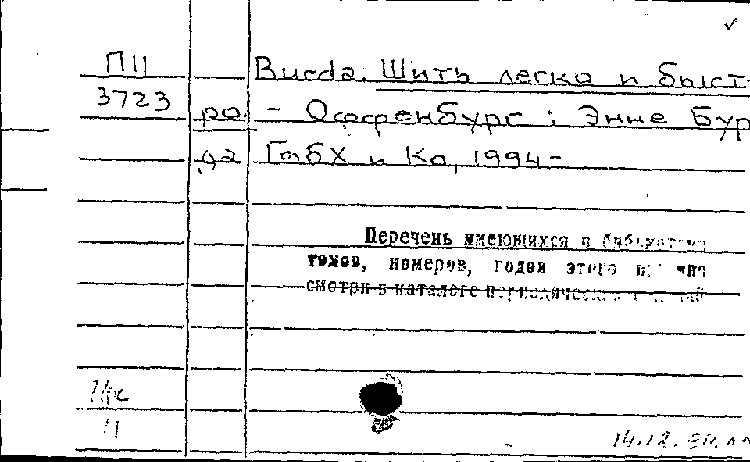 П11
3723
Burda. Шить легко и быст-
ро. - Оффенбург : Энне Бур-
да ГмбХ и Ко, 1994-
Перечень имеющихся в библиотеке
томов, номеров, годов этого
смотри в каталоге периодических
14.12.